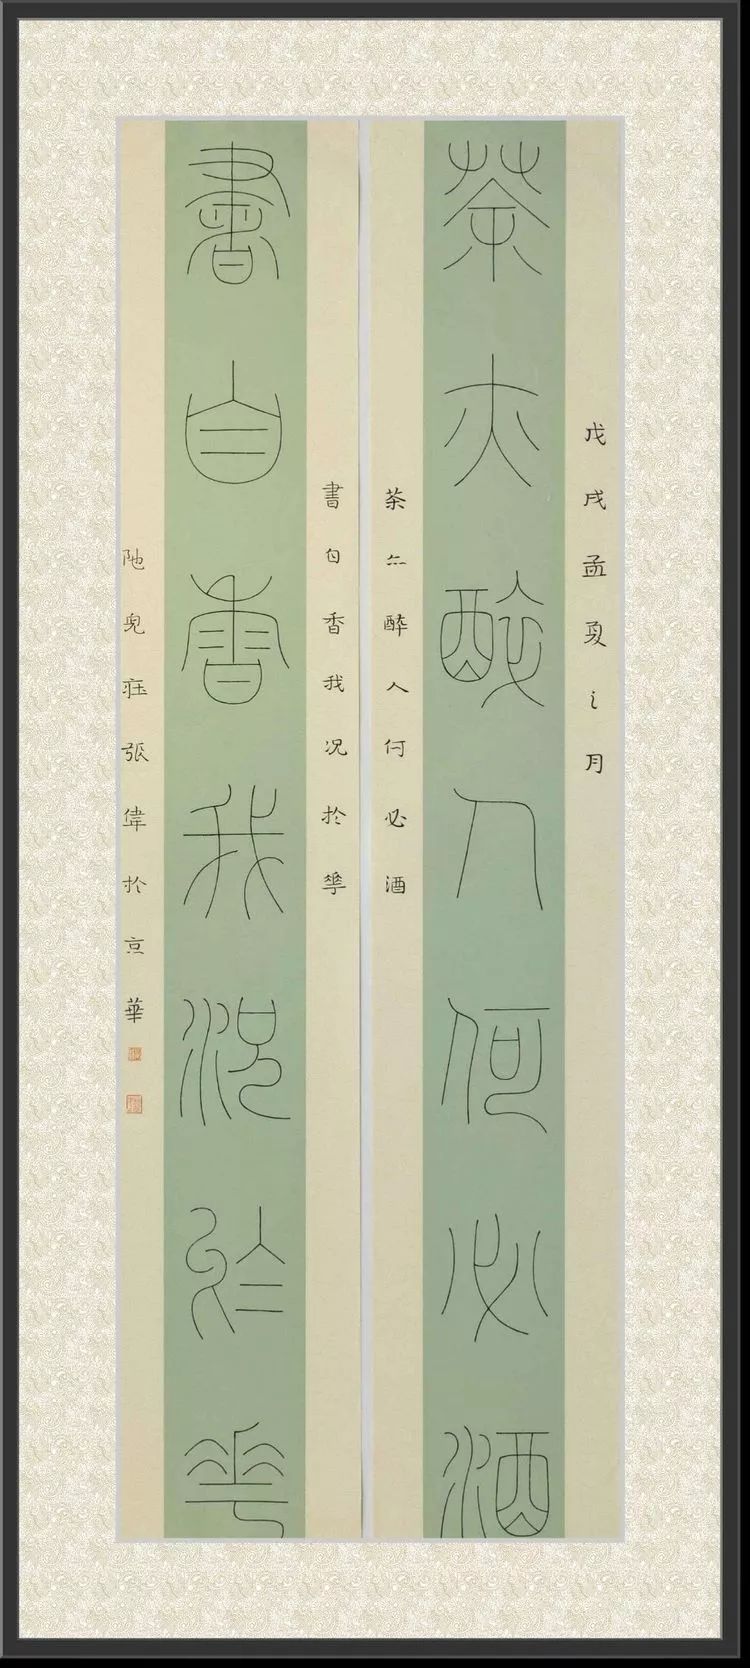 戊戌孟夏之月
茶亦醉人何必酒
茶亦醉人何必酒
書自香我况於華
書自香我況於華
張偉於京華